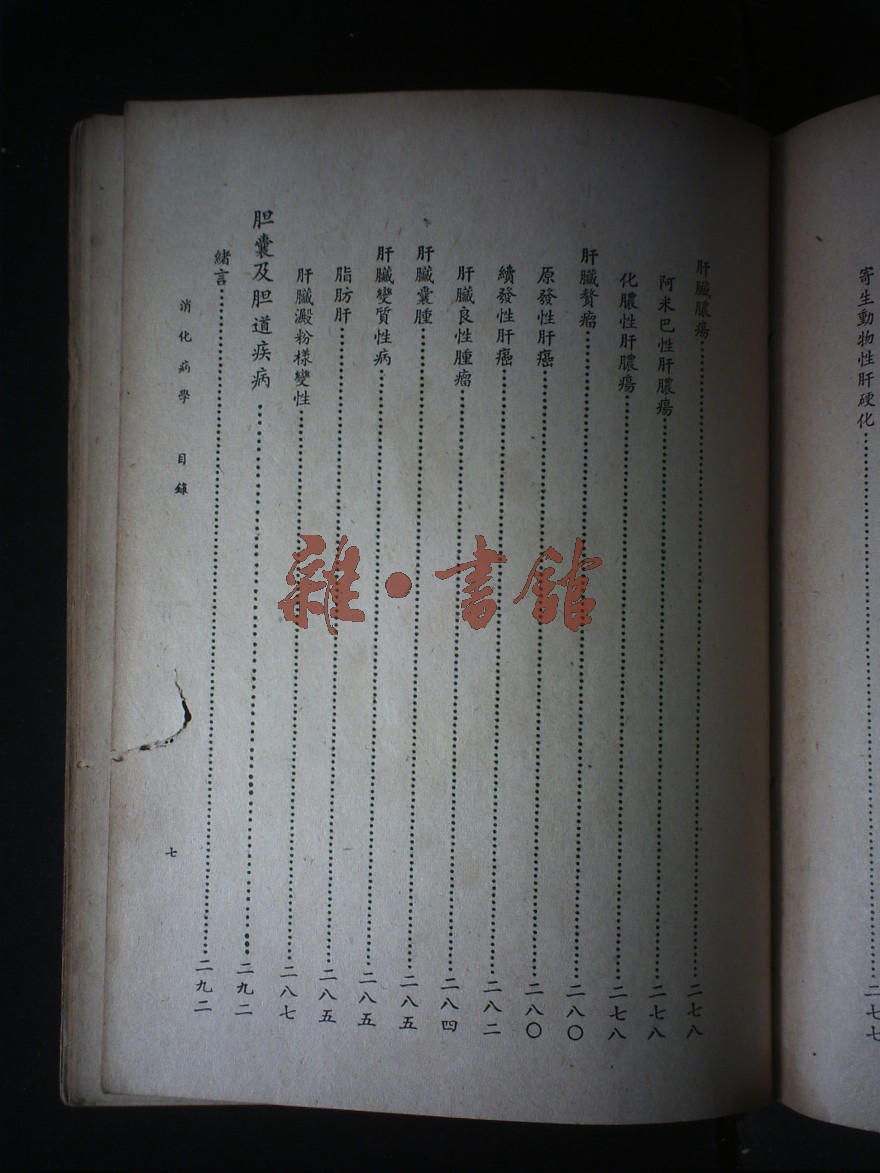 寄生動物性肝硬化……二七七
肝臟膿瘍……二七八
阿米巴性肝膿瘍……二七八
化膿性肝膿瘍……二七八
肝臟贅瘤……二八〇
原發性肝癌……二八〇
續發性肝癌……二八二
肝臟良性腫瘤……二八四
肝臟囊腫……二八五
肝臟變質性病……二八五
脂肪肝……二八五
肝臟澱粉樣變性……二八七
胆囊及胆道疾病……二九二
緒言……二九二
消化病學 目錄 七
雜·書館